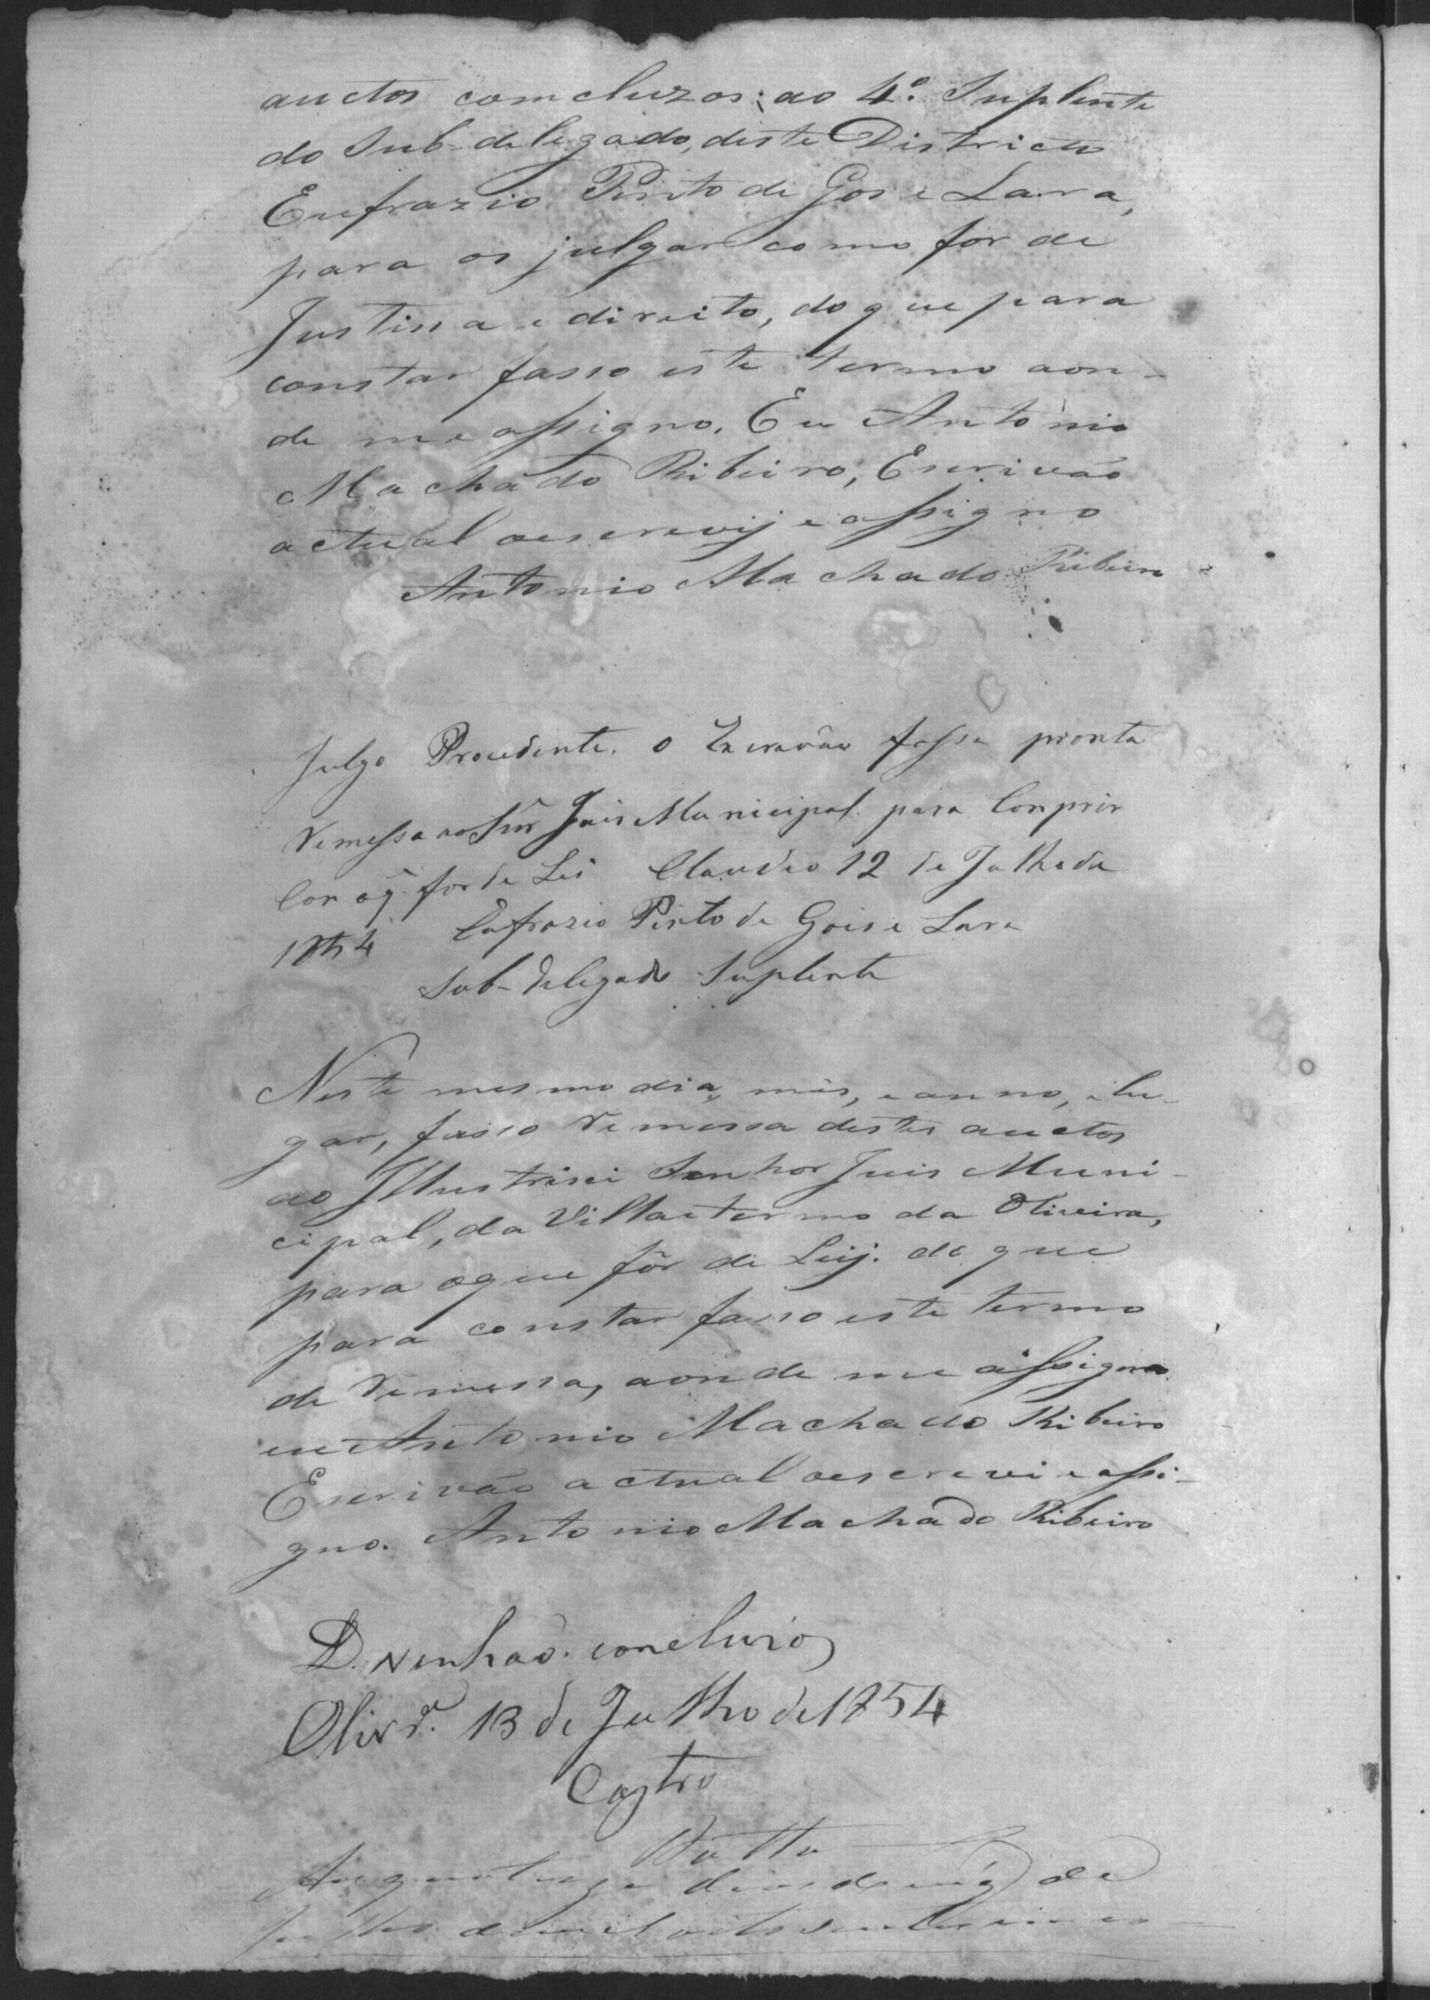 auctos comcluzos: ao 4.º Suplente
do Sub-delegado, deste Districto
Eufrazio Pinto de Gos e Lara,
para os julgar como for de
Justissa e direito, do que para
constar fasso este termo aon-
de me assigno. Eu Antonio
Machado Ribeiro, Escrivão
actual oescrevij e assigno
Antonio Machado Ribeiro
Julgo Procedente. o Escravão fassa pronta
Remessa ao Snr Juis Municipal para Conprir
Con oq̃ for de Lei Claudio 12 de Julho de
1854 Eufrazio Pinto de Gois e Lara
Sub-delegado Suplente
Neste mesmo dia, mes, e anno, e lu-
gar, fasso Remessa destes auctos
ao Illustrisi Senhor Juis Muni-
cipal, da Villa e termo da Oliveira,
para oque fôr de Leij. do que
para constar fasso este termo
de Remessa, aonde me assigno
eu Antonio Machado Ribeiro
Escrivão actual oescrevi e assi-
gno. Antonio Machado Ribeiro
D. venhão concluzos
Olivr.ª 13 de Julho de 1854
Castro
Datta
de